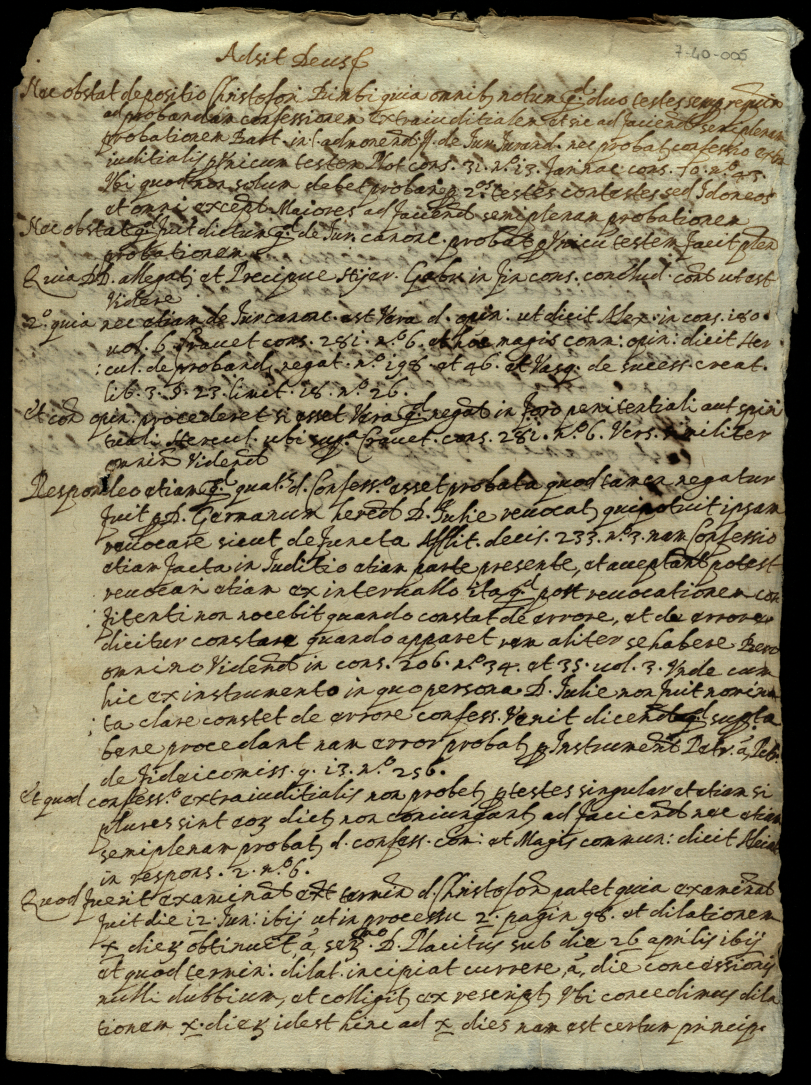 7-40-006
Adsit Deus
Nec obstat depositio Christofori Bimbi quia omnib; notum qd duo testes semp requir
ad probandam confessionem extraiuditialem et sic ad faciend semiplenam
probationem Bart. in l. admonendi ff. de Jur. Jurand. nec probat confessio extra
iuditialis p unicum testem cons. 31. n.o 13. cons. 70. n.o 43.
Ubi quod non solum debet probari p 2.os testes contestes sed Idoneos
et omni except Maiores ad faciend semiplenam probationem
Nec obstat qd fuit dictum qd de Jur. canonc. probat p Unicu testem facit plen
probationem
Quia DD. allegati et Precipue Gabr. in cons. conclud. cont ut est
Videre
2.o quia nec etiam de Jur canonc. est Vera d. opin: ut dicit Alex. in cons. 180.
vol. 6. Cravet cons. 281. n.o 6. et hoc magis comm: opin: dicit Her
cul. de proband. negat. n.o 198. et 46. et Vasq. de success. creat.
lib. 3. §. 23. limit. 18. n.o 26.
et con opin. procederet si esset Vera qd negat in foro penitentiali aut spiri
tuali Hercul. ubi sup.a Cravet. cons. 281. n.o 6. Vers. similiter
omnin Vidend
Respondeo etiam qd qual. d. Confess.o esset probata quod tamen negatur
fuit p D. Germanum hered D. Julie revocat, qui potuit ipsam
revocare sicut defuncta Afflit. decis. 233. n.o 3. nam Confessio
etiam facta in Juditio etiam parte presente, et aceptant potest
revocari etiam ex intervallo ita qd post revocationem con
fitenti non nocebit quando constat de errore, et de errore
dicitur constare quando apparet rem aliter se habere Bero
omnino Vidend in cons. 206. n.o 34. et 35. vol. 3. Unde cum
hic ex instrumento in quo persona D. Julie non fuit nomina
ta clare constet de errore confess. Venit dicend qd sup.ta
bene procedant nam error probat p Instrument Petr. à Petr.
de fideicomiss. q. 13. n.o 256.
et quod confess.o extraiudtialis non probet p testes singular et etiam si
plures sint eor dict non coniungant ad faciend nec etiam
semiplenam probat, d. confess. con: et Magis commun: dicit
in respons. 2. n.o 6.
Quod fuerit examinat ext termin d. Christoforo patet quia examinat
fuit die 12. Jun: ibij ut in processu 2.o pagin 98. et dilationem
x. dier obtinuet à D. Placitus sub die 26 aprilis ibij
et quod termin: dilat. incipiat currere à, die concessionis
nulli dubbium, et colligit ex rescript, Ubi concedimus dila
tionem x. dier idest hinc ad x dies nam est certum princip.